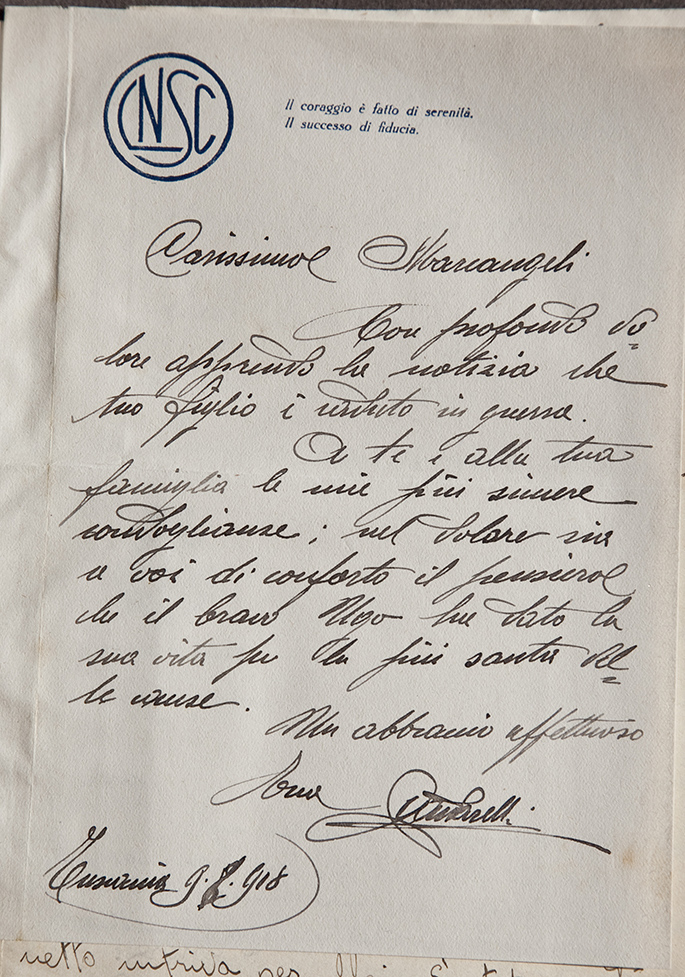 CNSC
Il coraggio è fatto di serenità.
Il successo di fiducia.
Carissimo Marcangeli
Con profondo do=
lore apprendo la notizia che
tuo figlio è caduto in guerra.
A te e alla tua
famiglia le mie più sincere
condoglianze; nel dolore sia
a voi di conforto il pensiero
che il bravo Ugo ha dato la
sua vita per la più santa del=
le cause.
Un abbraccio affettuoso
9. 918
netto per